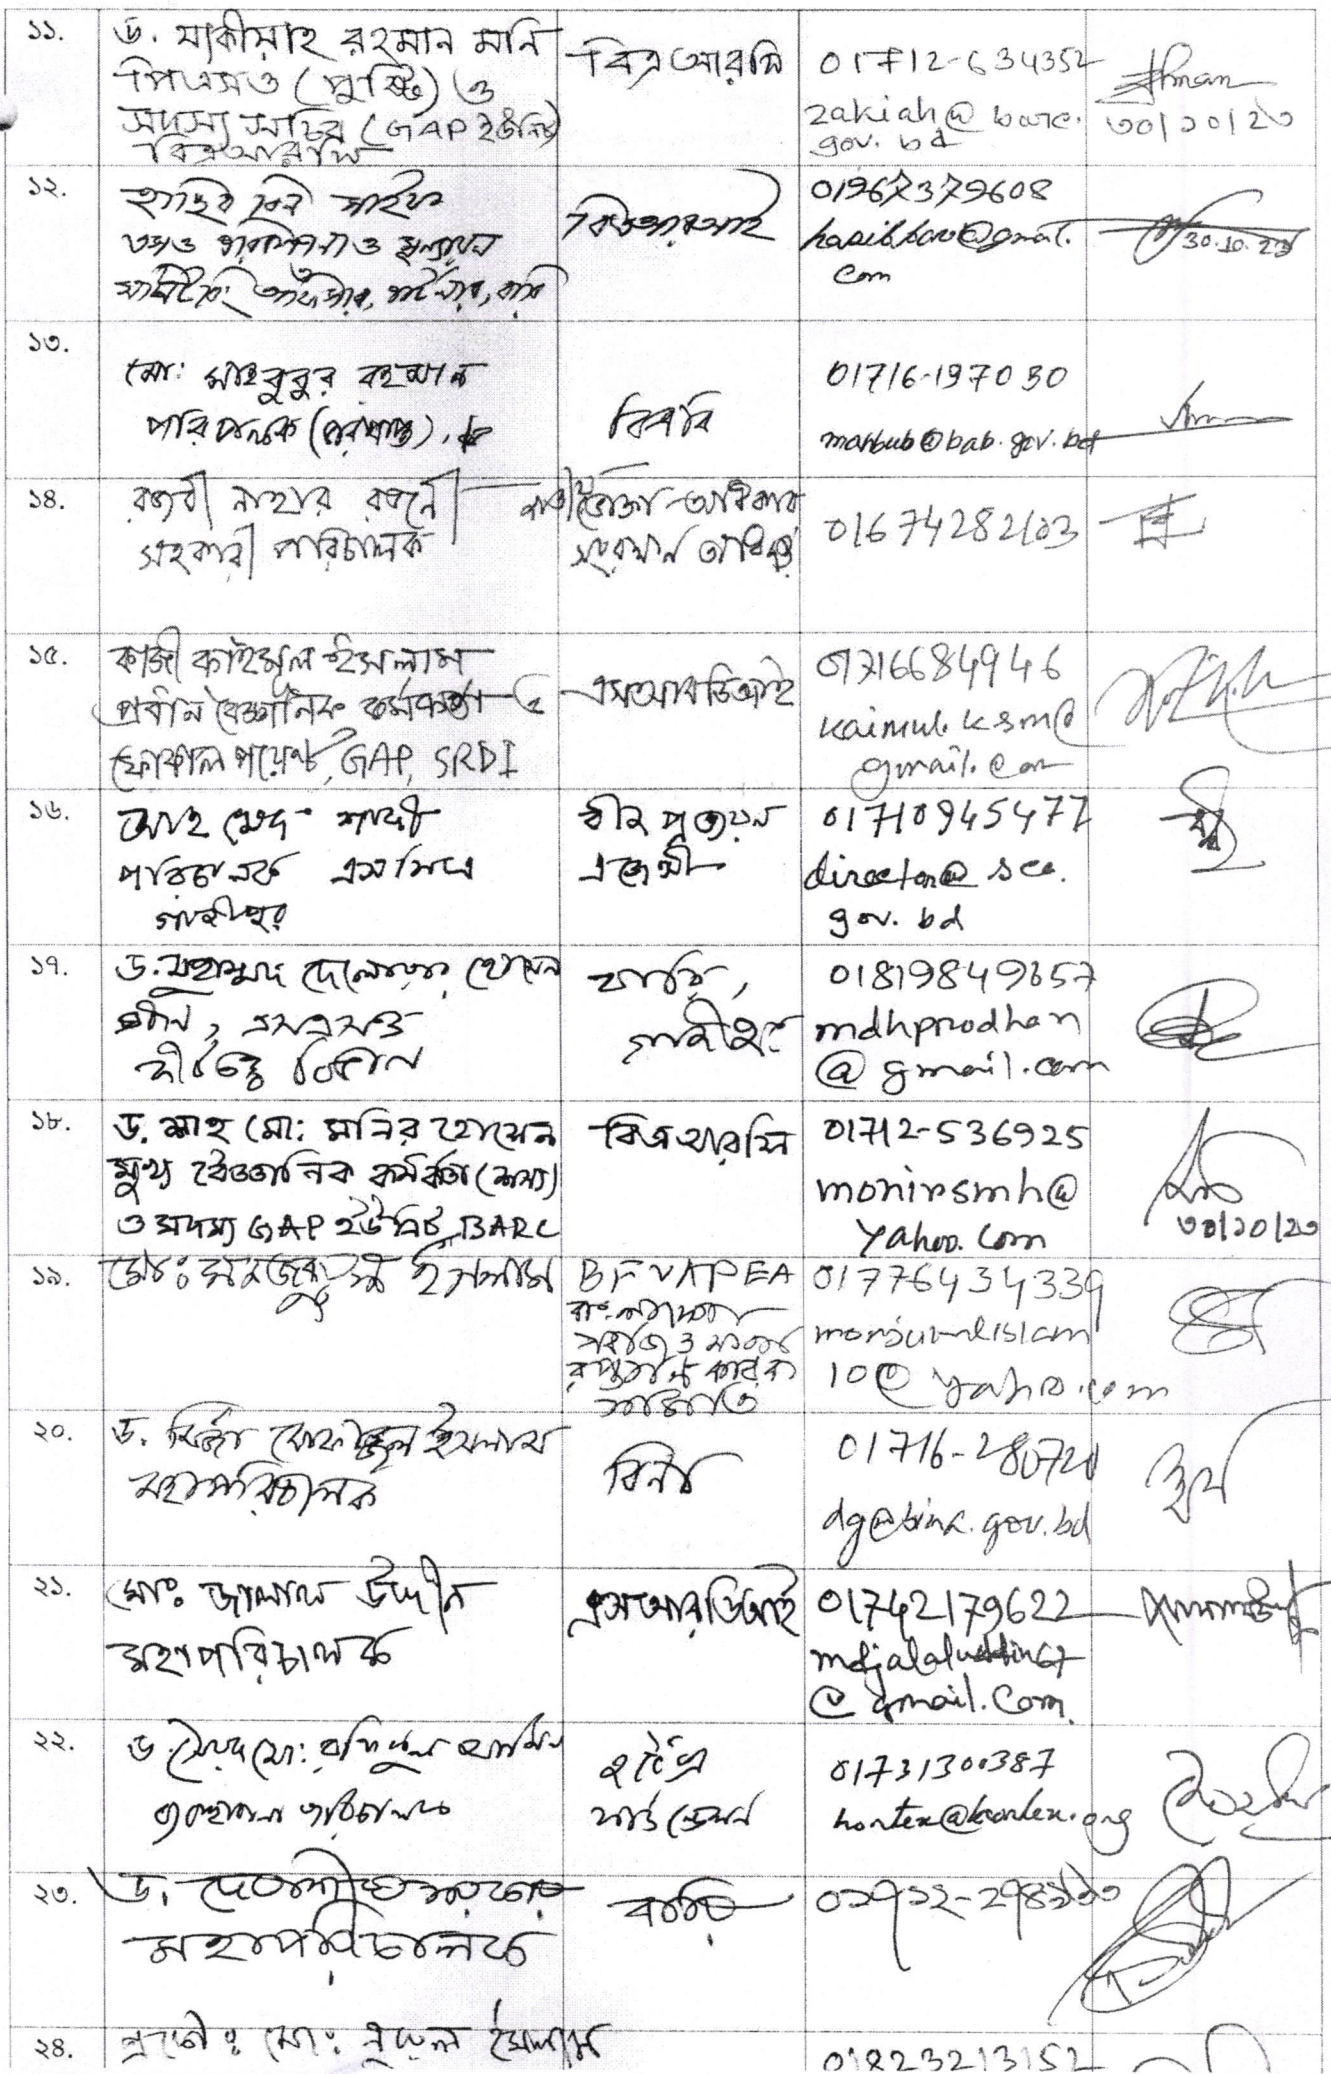 ১১.
ড. যাকীয়াহ রহমান মনি
পিএসও (পুষ্টি) ও
সদস্য সচিব (GAP ইউনিট)
বিএআরসি
বিএআরসি
01712-634352
zakiah@barc.
gov.bd
৩০/১০/২৩
১২.
হাছিব বিন সাইফ
01967379608
com
30.10.23
১৩.
মো: মাহবুবুর রহমান
পরিচালক
বিএবি
01716-197030
mahbub@bab.gov.bd
১৪.
নাহার
সহকারী পরিচালক
ভোক্তা অধিকার
01674282103
১৫.
কাজী কাইমুল ইসলাম
প্রধান বৈজ্ঞানিক কর্মকর্তা ও
ফোকাল পয়েন্ট, GAP, SRDI
এসআরডিআই
01716684946
kaimul.ksm@
gmail.com
১৬.
আহমেদ শাফী
পরিচালক এসসিএ
গাজীপুর
বীজ প্রত্যয়ন
এজেন্সী
01710945477
director@sca.
gov.bd
১৭.
ড. মুহাম্মদ দেলোয়ার হোসেন
প্রধান, এসএসও
কীটতত্ত্ব বিভাগ
বারি,
গাজীপুর
01819849657
mdhprodhan
@gmail.com
১৮.
ড. শাহ মো: মনির হোসেন
মুখ্য বৈজ্ঞানিক কর্মকর্তা (শস্য)
ও সদস্য GAP ইউনিট, BARC
বিএআরসি
01712-536925
monirsmh@
yahoo.com
৩০/১০/২৩
১৯.
মোঃ মনজুরুল ইসলাম
BFVAPEA
01776434339
monjurulislam
10@yahoo.com
২০.
ড. মির্জা মোফাজ্জল ইসলাম
মহাপরিচালক
বিনা
dg@bina.gov.bd
২১.
মোঃ জালাল উদ্দীন
মহাপরিচালক
এসআরডিআই
01742179622
mdjalaluddin67
@gmail.com
২২.
ড. সৈয়দ মো: রফিকুল আমিন
ব্যবস্থাপনা পরিচালক
হর্টেক্স
ফাউন্ডেশন
01731300387
hortex@hortex.org
২৩.
ড. দেবাশীষ সরকার
মহাপরিচালক
বারি
২৪.
মোঃ নুরুল ইসলাম
01823213152